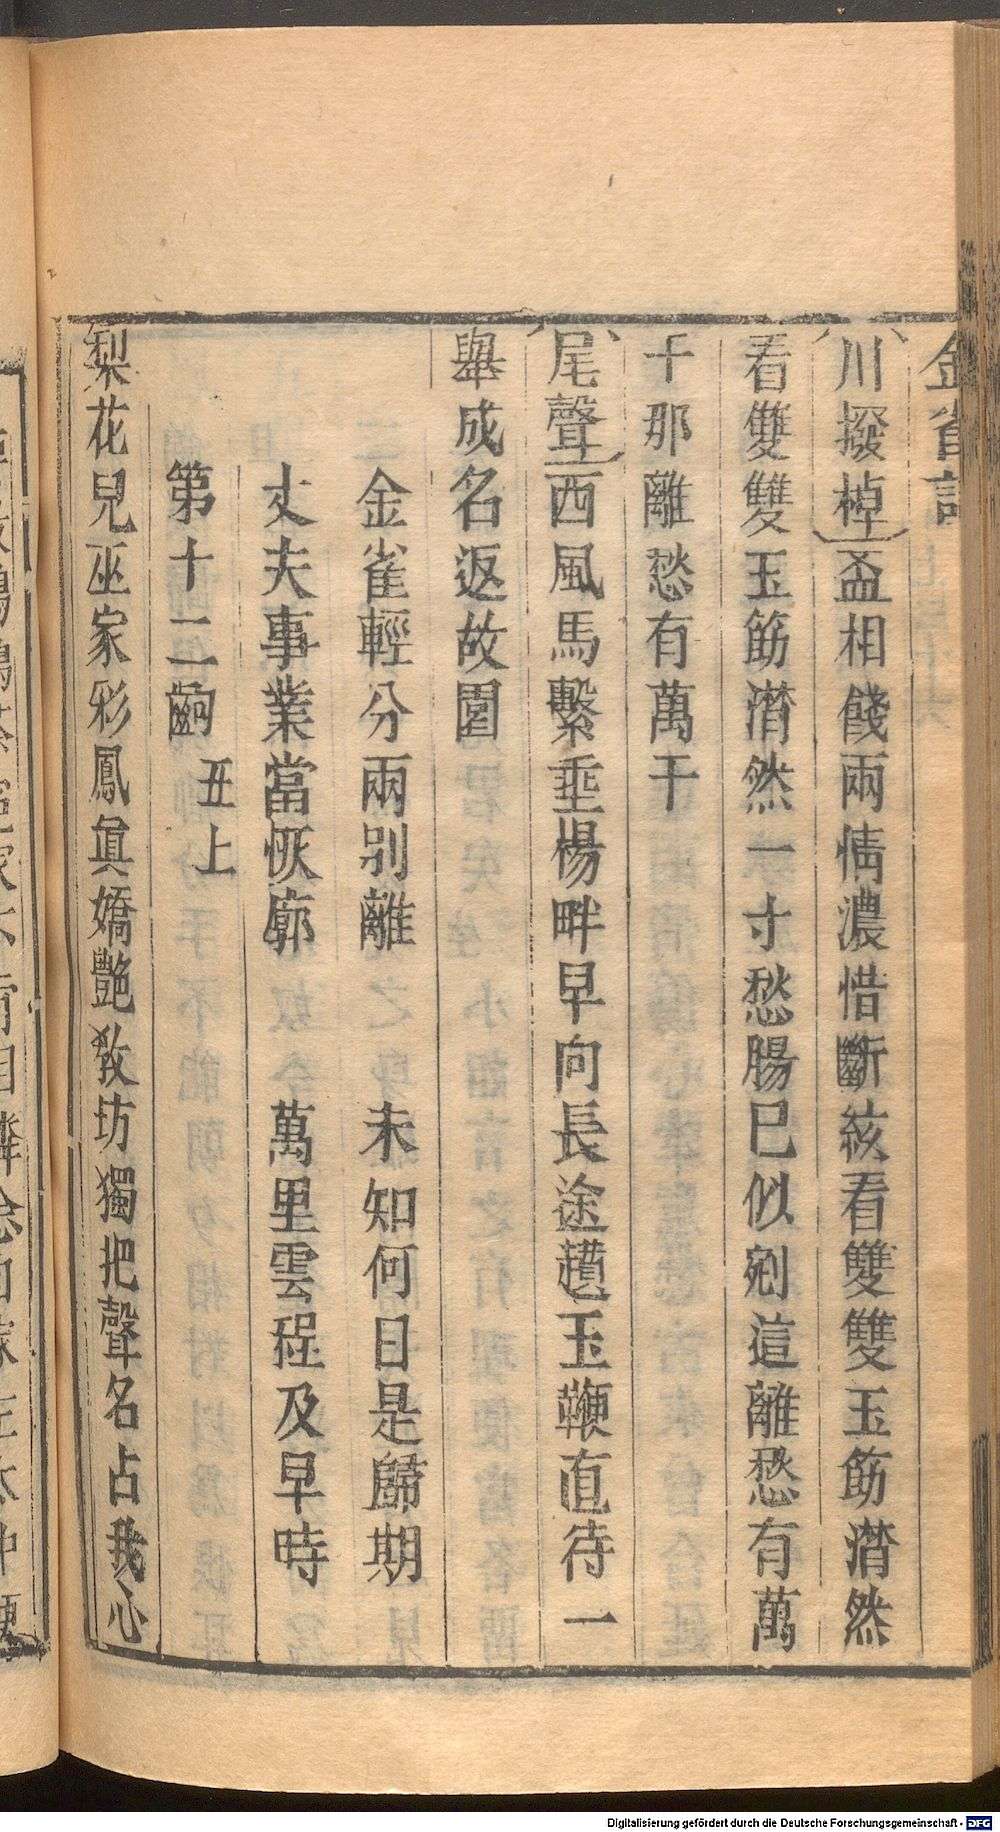 金雀記
川撥棹盃相餞兩情濃惜斷絃看雙雙玉筯潸然
看雙雙玉筯潸然一寸愁腸巳似剜這離愁有萬
千那離愁有萬千
尾聲西風馬繫垂楊畔早向長途趲玉鞭直待一
舉成名返故園
金雀輕分兩別離　未知何日是歸期
丈夫事業當恢廓　萬里雲程及早時
第十二齣　丑上
梨花兒巫家彩鳳眞嬌艷敎坊獨把聲名占我心
Digitalisierung gefördert durch die Deutsche Forschungsgemeinschaft - DFG